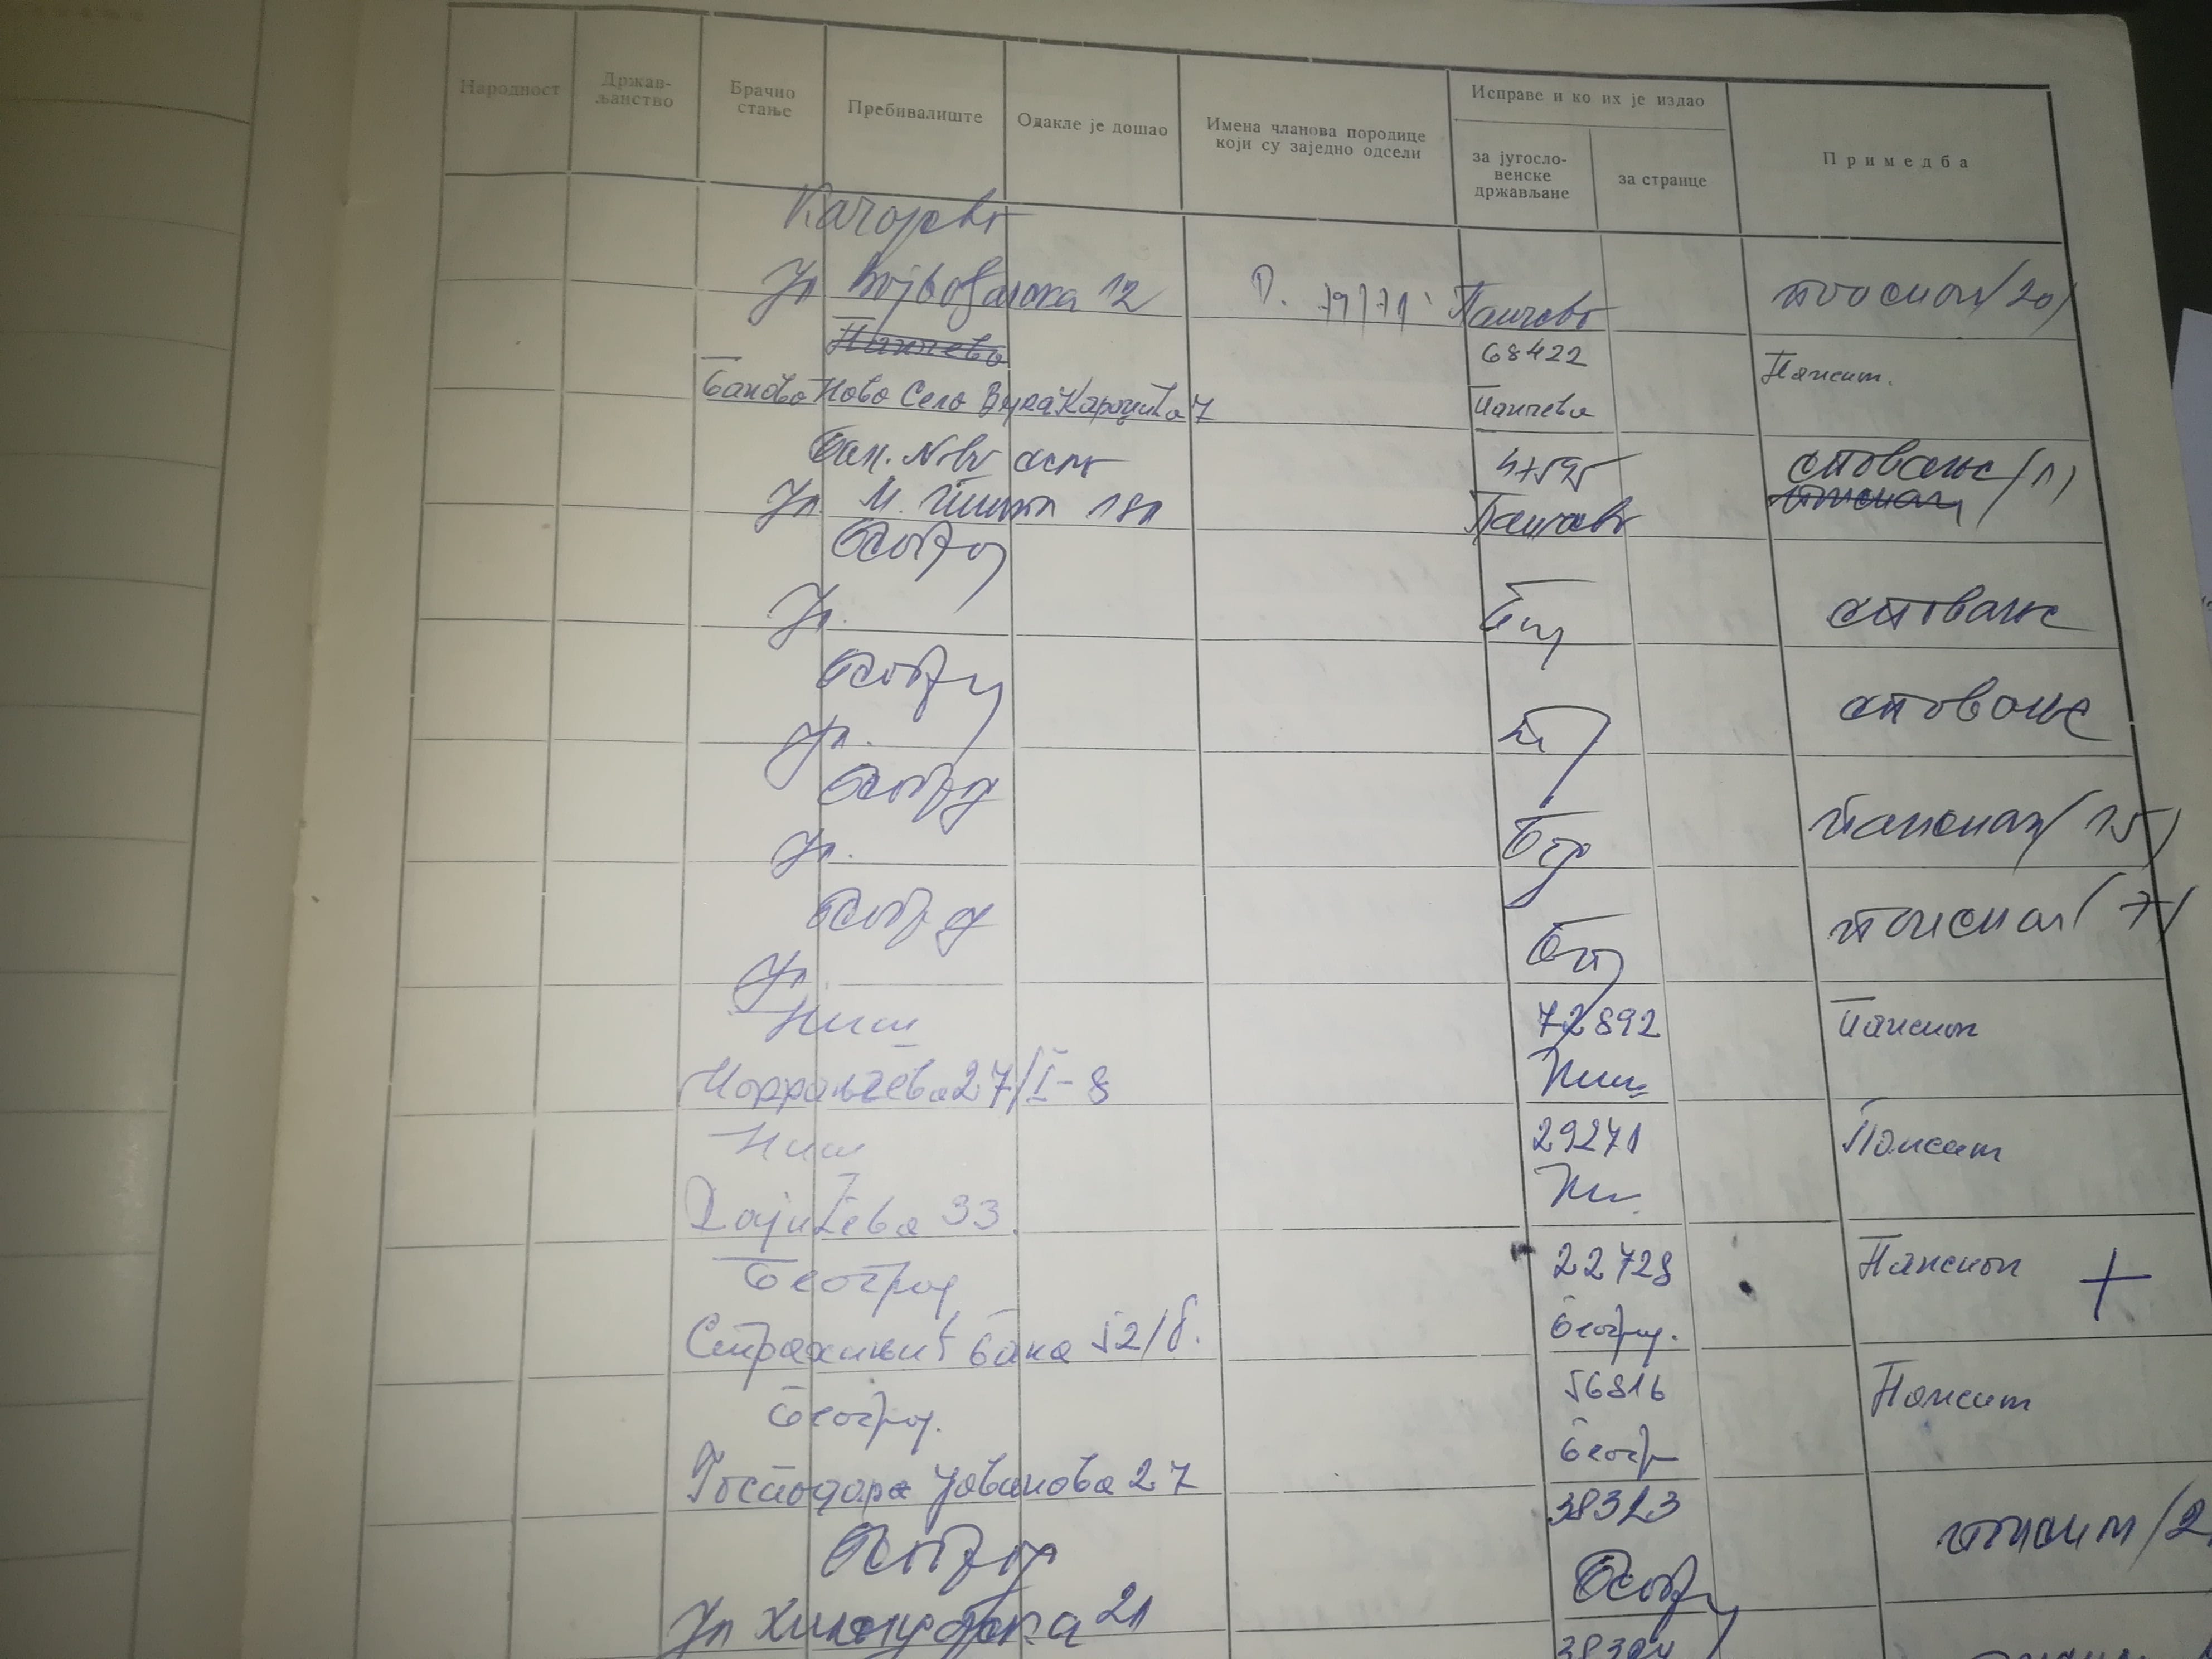 Народност
Држав-
љанство
Брачно
стање
Пребивалиште
Одакле је дошао
Имена чланова породице
који су заједно одсели
Исправе и ко их је издао
за југосло-
венске
држављане
за странце
Примедба
Качарево
Ул Војвођанска 12 Панчево пансион (20)
Панчево 68422 Пансион
Баново Ново Село Вука Караџића 7 Панчево
Бан. Ново село 47595 становање (1)
Ул. М. Тита 181 Панчево
Београд
Ул. Бгд становање
Београд
Ул. становање
Београд
Ул. Бгд пансион (15)
Београд
Ул. пансион (7)
Ниш 72892 Пансион
27/I-8 Ниш
Ниш 29271 Пансион
33. Ниш
Београд 22728 Пансион +
Страхињић бана 52/б. Београд.
Београд. 56816 Пансион
Господара Јованова 27 Беогр
38323
Београд пансион (2
Ул Хиландарска 21 Београд